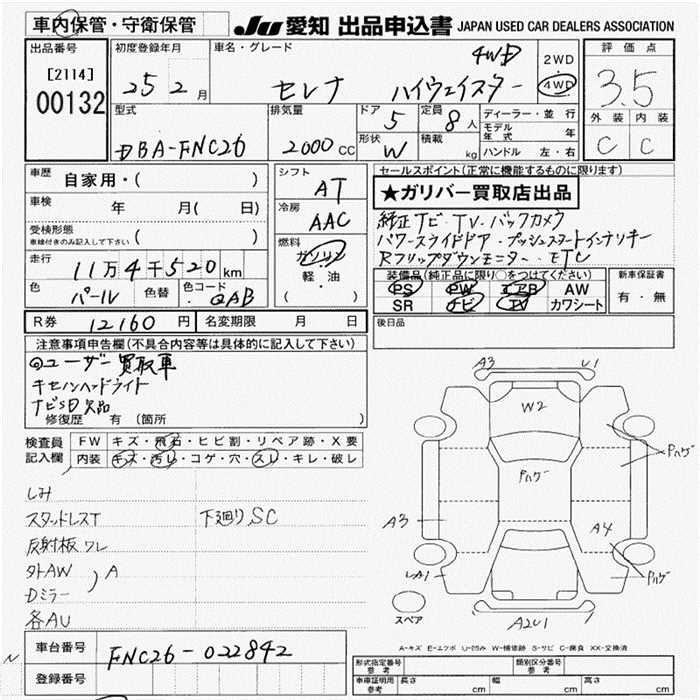 車内保管・守衛保管
JU 愛知 出品申込書 JAPAN USED CAR DEALERS ASSOCIATION
出品番号
[2114]
00132
初度登録年月
25 2 月
車名・グレード
セレナ ハイウェイスター 4WD
2WD
4WD
評価点
3.5
外装 内装
C C
型式
DBA-FNC26
排気量
2000 CC
ドア
5
形状
W
定員
8 人
積載
kg
ディーラー・並行
モデル年式 年
ハンドル 左・右
車歴 自家用・( )
車検 年 月( 日)
受検形態
車検付きのみ記入して下さい ( )
走行
11万4千520km
色 パール 色替 色コード QAB
シフト
AT
冷房
AAC
燃料
ガソリン
軽・油
( )
セールスポイント(正常に機能するものに限ります)
★ガリバー買取店出品
純正ナビ・TV・バックカメラ
パワースライドドア・プッシュスタートインテリキー
Rフリップダウンモニター・ETC
装備品(純正品に限り○をつけてください)
PS PW エアB AW
SR ナビ TV カワシート
新車保証書
有・無
R券 12160円 名変期限 月 日
後日品
注意事項申告欄(不具合内容等は具体的に記入して下さい)
ユーザー買取車
キセノンヘッドライト
ナビSD欠品
修復歴 有 (箇所 )
検査員記入欄
FW キズ・飛石・ヒビ割・リペア跡・X要
内装 キズ・汚レ・コゲ・穴・スレ・キレ・破レ
しみ
スタッドレスT 下廻りSC
反射板 ワレ
外AW
Dミラー
A
各AU
A3 U1
W2
Pハゲ
Pハゲ
A3
A4
LA1
Pハゲ
A2U1
スペア
A-キズ E-エクボ U-凹み W-補修跡 S-サビ C-腐食 XX-交換済
車台番号 FNC26-022842
登録番号
形式指定番号 参考
類別区分番号 参考
車庫証明用 参考 長さ cm 幅 cm 高さ cm